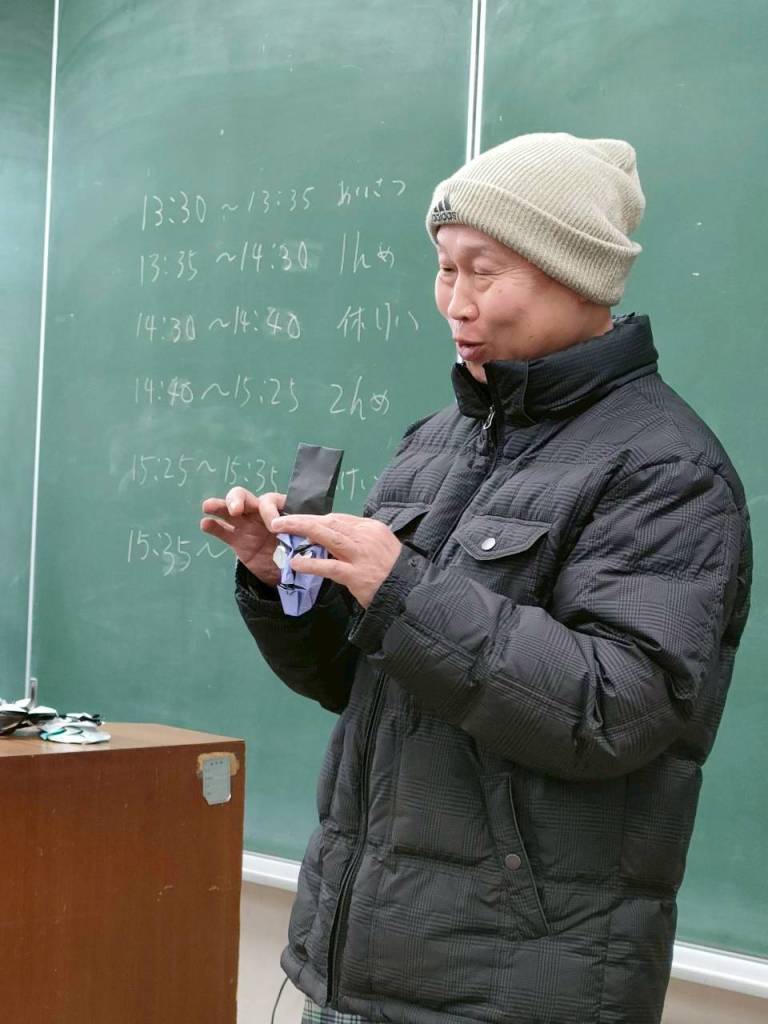 adidas
13:30～13:35 あいさつ
13:35～14:30 1んめ
14:30～14:40 休けい
14:40～15:25 2んめ
15:25～15:35 けい
15:35～